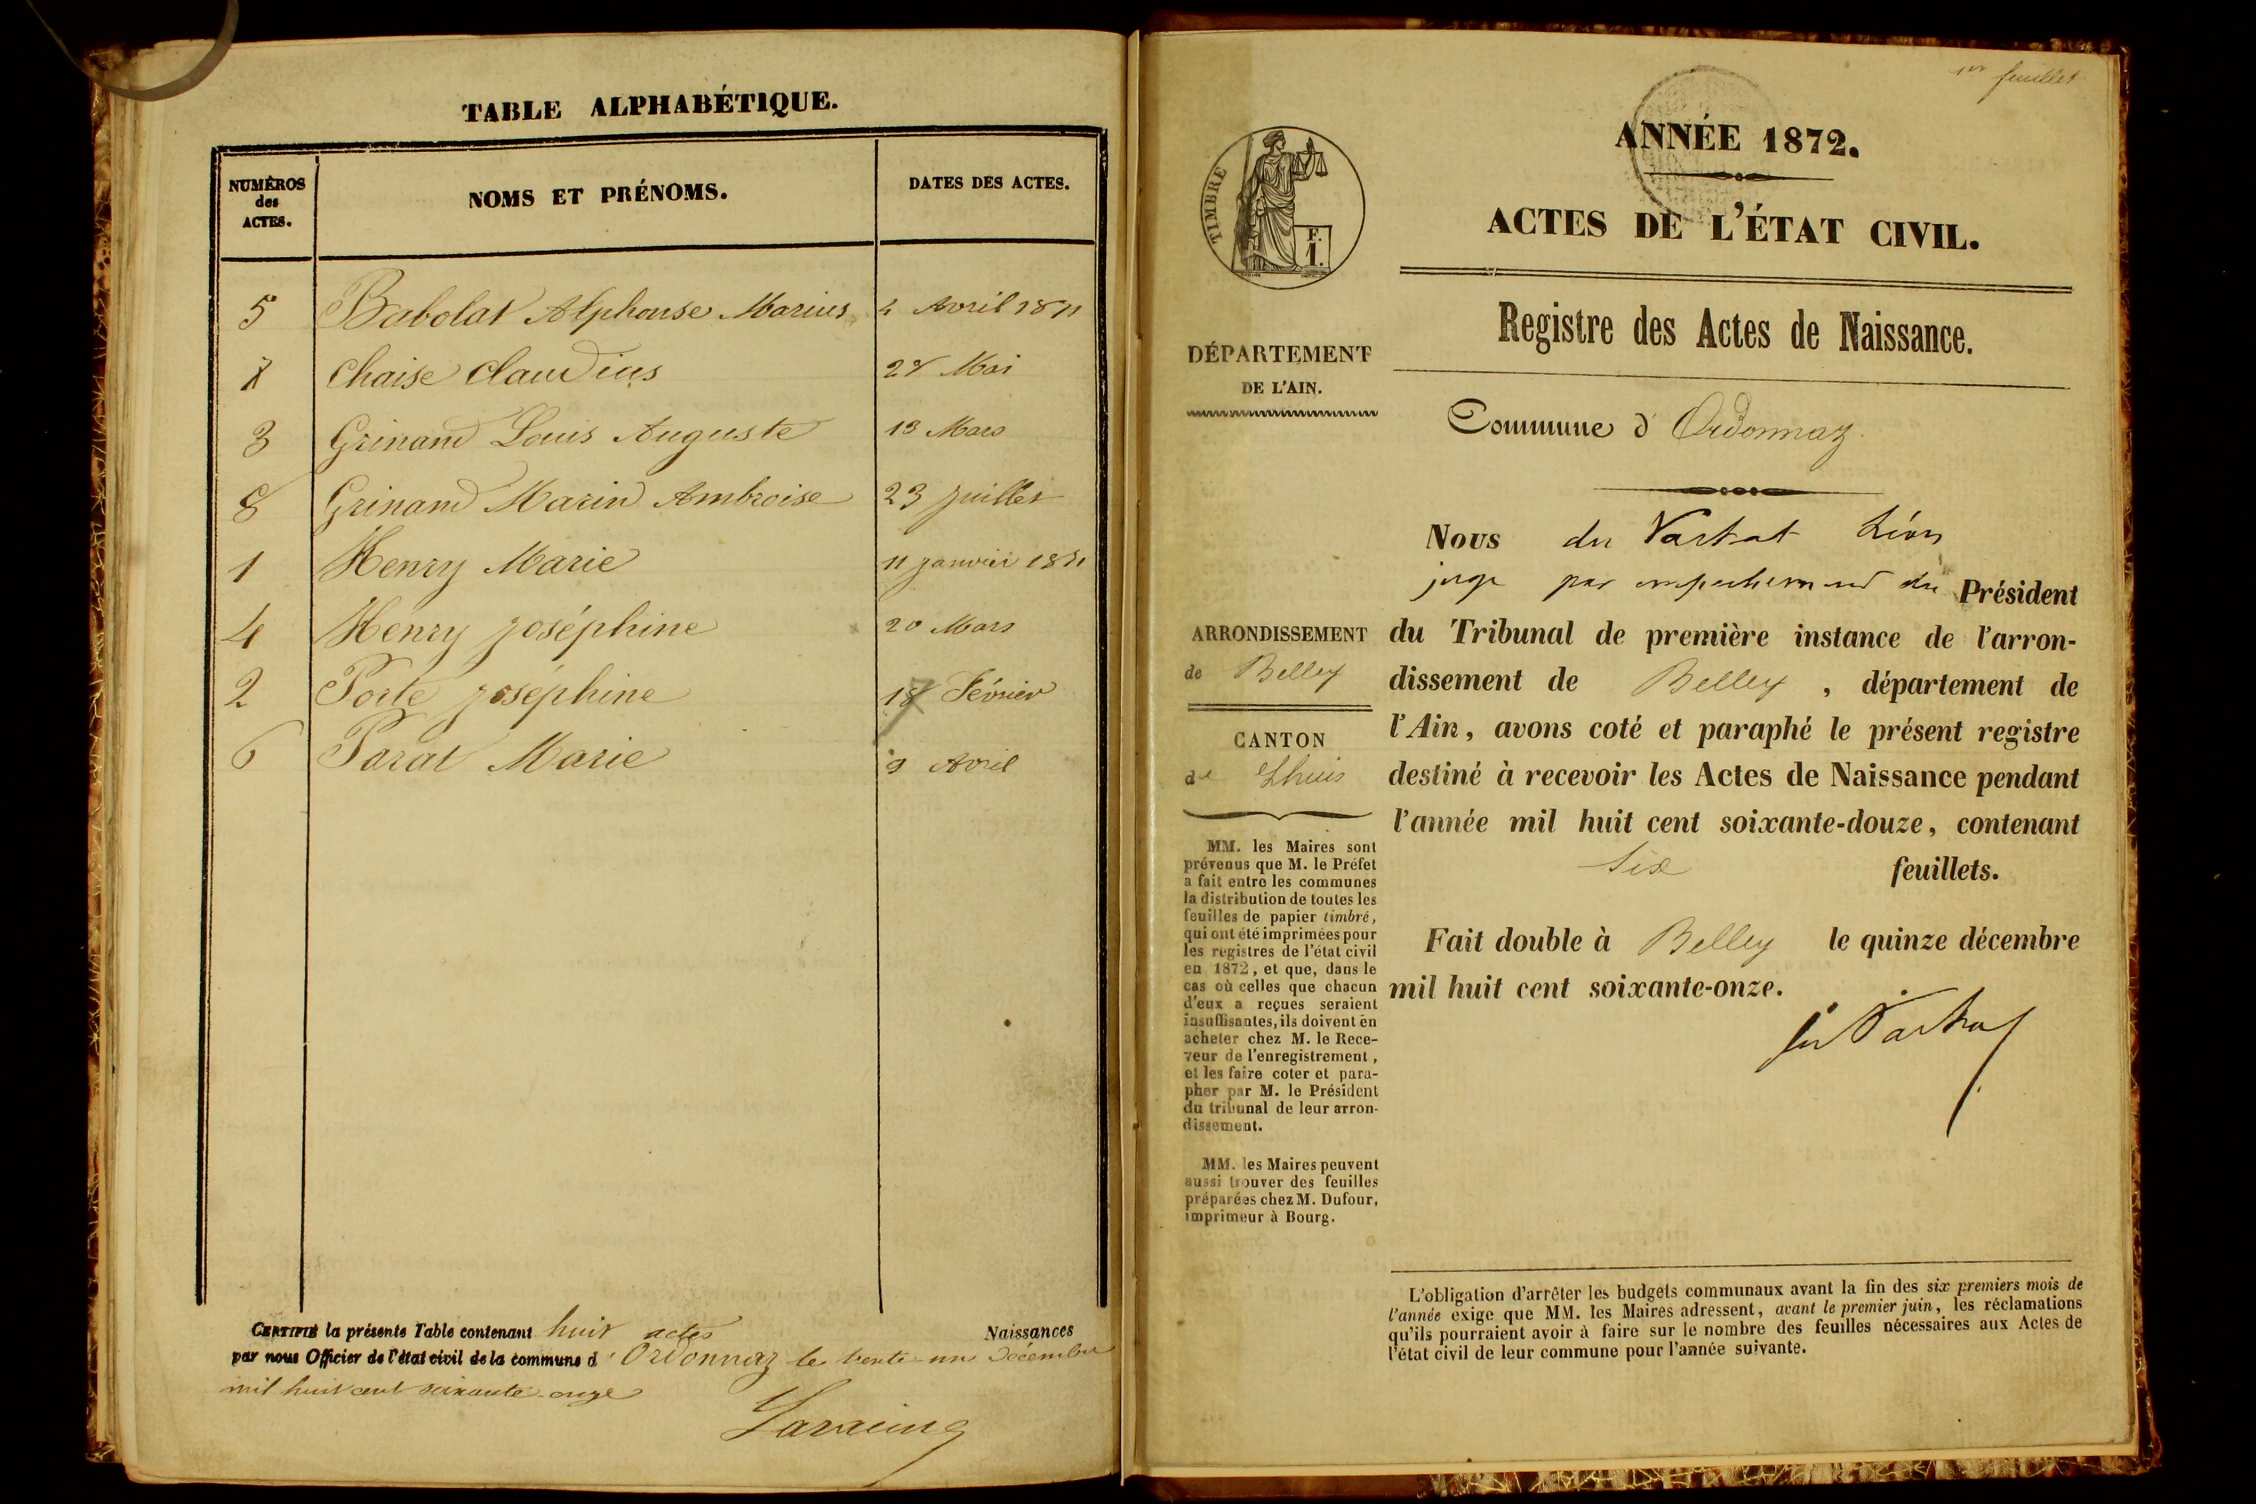 TABLE ALPHABÉTIQUE.
NUMÉROS des ACTES.
NOMS ET PRÉNOMS.
DATES DES ACTES.
5 Babolat Alphonse Marius 2 Avril 1871
7 Chaise Claudius 28 Mai
3 Grinand Louis Auguste 13 Mars
8 Grinand Marin Ambroise 23 juillet
1 Henry Marie 11 janvier 1871
4 Henry joséphine 20 Mars
2 Porte joséphine 18 Février
6 Parat Marie 9 Avril
CERTIFIÉ la présente Table contenant huit actes Naissances
par nous Officier de l'état civil de la commune d'Ordonnaz le trente-un Décembre
mil huit cent soixante-onze
1er feuillet
TIMBRE
F.
1.
ANNÉE 1872.
ACTES DE L'ÉTAT CIVIL.
Registre des Actes de Naissance.
DÉPARTEMENT
DE L'AIN.
Commune d'Ordonnaz
Nous du Vachat Léon
juge par empechement du Président
ARRONDISSEMENT
de Belley
CANTON
de Lhuis
du Tribunal de première instance de l'arron-
dissement de Belley, département de
l'Ain, avons coté et paraphé le présent registre
destiné à recevoir les Actes de Naissance pendant
l'année mil huit cent soixante-douze, contenant
six feuillets.
Fait double à Belley le quinze décembre
mil huit cent soixante-onze.
du Vachat
MM. les Maires sont
prévenus que M. le Préfet
a fait entre les communes
la distribution de toutes les
feuilles de papier timbré,
qui ont été imprimées pour
les registres de l'état civil
en 1872, et que, dans le
cas où celles que chacun
d'eux a reçues seraient
insuffisantes, ils doivent en
acheter chez M. le Rece-
veur de l'enregistrement,
et les faire coter et para-
pher par M. le Président
du tribunal de leur arron-
dissement.
MM. les Maires peuvent
aussi trouver des feuilles
préparées chez M. Dufour,
imprimeur à Bourg.
L'obligation d'arrêter les budgets communaux avant la fin des six premiers mois de
l'année exige que MM. les Maires adressent, avant le premier juin, les réclamations
qu'ils pourraient avoir à faire sur le nombre des feuilles nécessaires aux Actes de
l'état civil de leur commune pour l'année suivante.